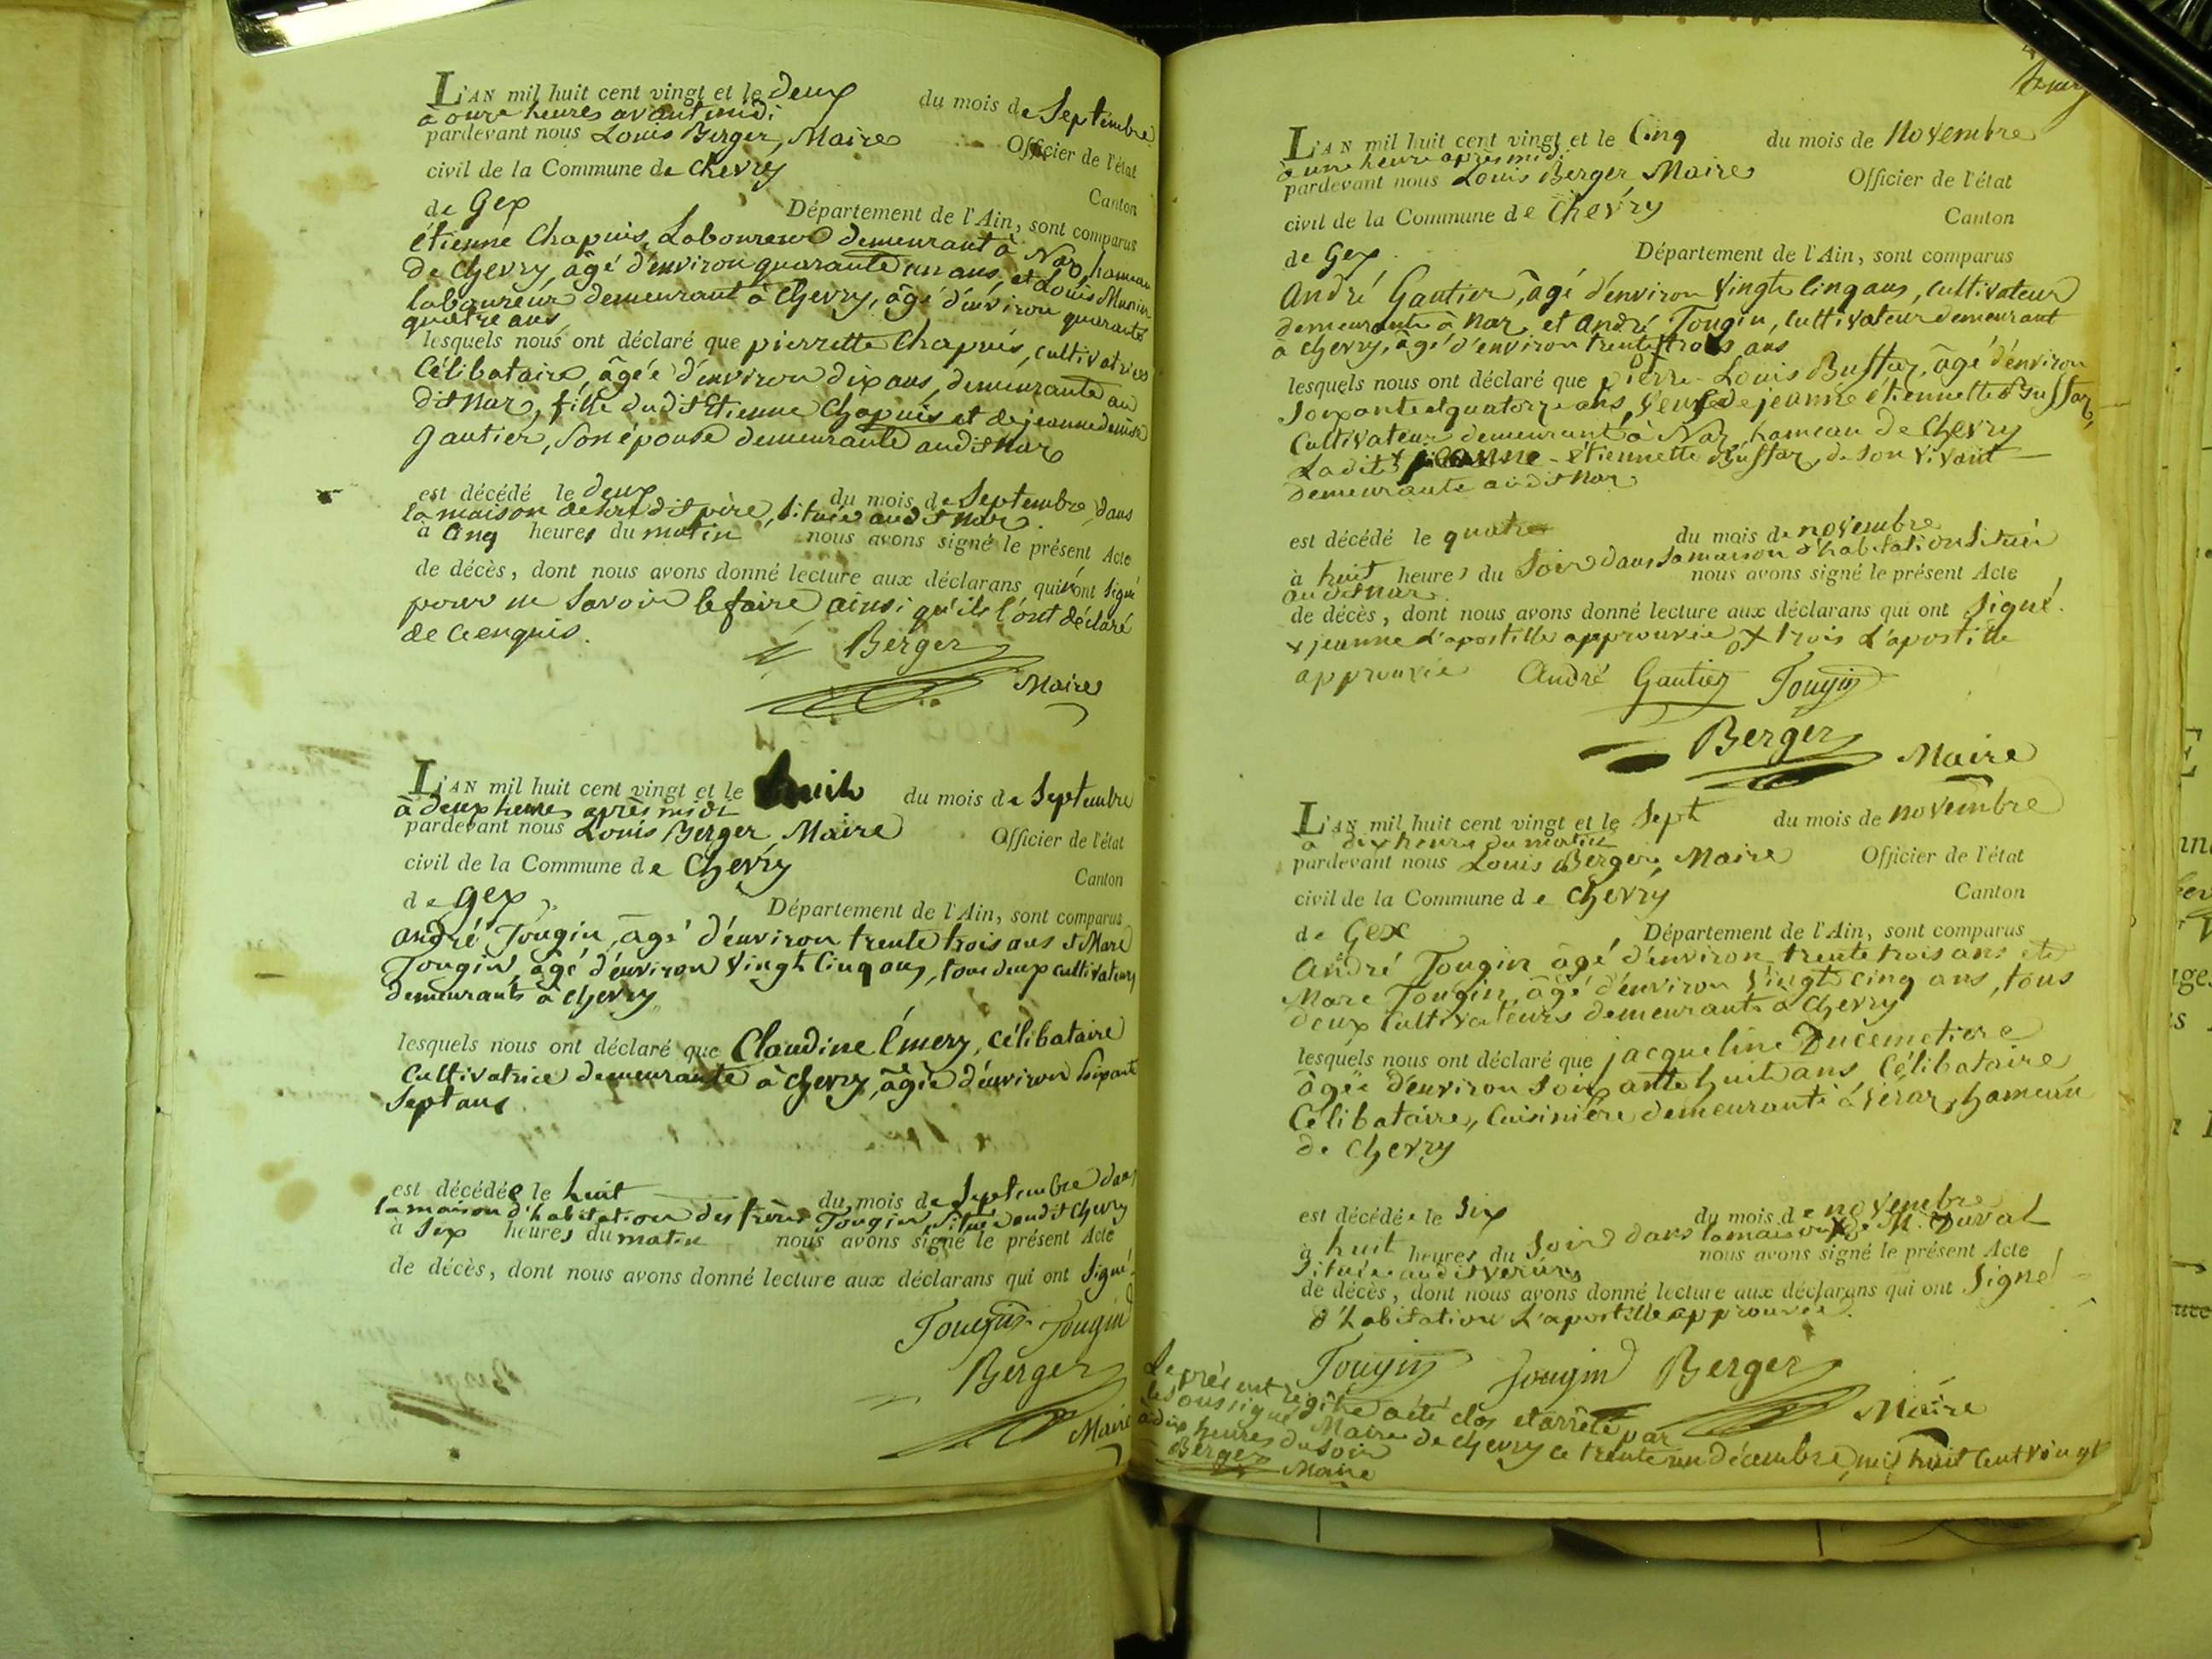 L'AN mil huit cent vingt et le deux du mois de Septembre
à onze heures avant midi
pardevant nous Louis Berger, Maire Officier de l'état
civil de la Commune de Chevry Canton
de Gex Département de l'Ain, sont comparus
étienne Chapuis, Laboureur demeurant à Naz, hameau
de Chevry, âgé d'environ quarante un ans, et Louis Munier
laboureur demeurant à Chevry, âgé d'environ quarante
quatre ans
lesquels nous ont déclaré que pierrette Chapuis, cultivatrice
Célibataire, âgée d'environ dix ans, demeurante au
dit Naz, fille dudit Etienne Chapuis et de jeanne denise
Gautier, Son épouse demeurante audit Naz
est décédé le deux du mois de Septembre, dans
la maison de son dit père, située audit Naz.
à Cinq heures du matin nous avons signé le présent Acte
de décès, dont nous avons donné lecture aux déclarans qui n'ont Signé
pour ne Savoir le faire ainsi qu'ils l'ont déclaré
de ce enquis.
Berger
Maire
L'AN mil huit cent vingt et le huit du mois de Septembre
à deux heures après midi
pardevant nous Louis Berger, Maire Officier de l'état
civil de la Commune de Chevry Canton
de Gex Département de l'Ain, sont comparus
André Tougin, âgé d'environ trente trois ans et Marc
Tougin, âgé d'environ Vingt Cinq ans, tous deux cultivateurs
demeurants à Chevry
lesquels nous ont déclaré que Claudine Émery, Célibataire
Cultivatrice demeurante à Chevry, âgée d'environ Soixante
Sept ans
est décédée le huit du mois de Septembre dans
la maison d'habitation des frères Tougin, Située audit Chevry
à Six heures du matin nous avons signé le présent Acte
de décès, dont nous avons donné lecture aux déclarans qui ont Signé.
Tougin Tougin
Berger
Maire
L'AN mil huit cent vingt et le Cinq du mois de Novembre
à une heure après midi
pardevant nous Louis Berger, Maire Officier de l'état
civil de la Commune de Chevry Canton
de Gex Département de l'Ain, sont comparus
André Gautier, âgé d'environ Vingt Cinq ans, Cultivateur
demeurante à Naz, et André Tougin, Cultivateur demeurant
à Chevry, âgé d'environ trente trois ans
lesquels nous ont déclaré que pierre-Louis Buffaz, âgé d'environ
Soixante et quatorze ans, Veuf de jeanne étiennette Buffaz,
Cultivateur demeurant à Naz, hameau de Chevry
Ladite jeanne-étiennette Buffaz, de Son Vivant
demeurante audit Naz
est décédé le quatre du mois de novembre
à huit heures du Soir dans Sa maison d'habitation Située
audit Naz. nous avons signé le présent Acte
de décès, dont nous avons donné lecture aux déclarans qui ont Signé.
x jeanne L'apostille approuvée x trois L'apostille
approuvée André Gautier Tougin
Berger
Maire
L'AN mil huit cent vingt et le Sept du mois de novembre
à dix heures du matin
pardevant nous Louis Berger, Maire Officier de l'état
civil de la Commune de Chevry Canton
de Gex Département de l'Ain, sont comparus
André Tougin âgé d'environ trente trois ans et
Marc Tougin, âgé d'environ Vingt cinq ans, tous
deux Cultivateurs demeurants à Chevry
lesquels nous ont déclaré que jacqueline Ducemetiere
âgée d'environ Soixante huit ans, Célibataire
Célibataire, Cuisinière demeurante à Véraz, hameau
de Chevry
est décédée le Six du mois de novembre
à huit heures du Soir dans la maison de M. Duval
Située audit Veraz nous avons signé le présent Acte
de décès, dont nous avons donné lecture aux déclarans qui ont Signé
d'habitation L'apostille approuvée.
Tougin Tougin Berger
Maire
Le présent registre a été clos et arrêté par
le Soussigné Maire de Chevry ce trente un décembre mil huit Cent Vingt
à dix heures du Soir
Berger Maire